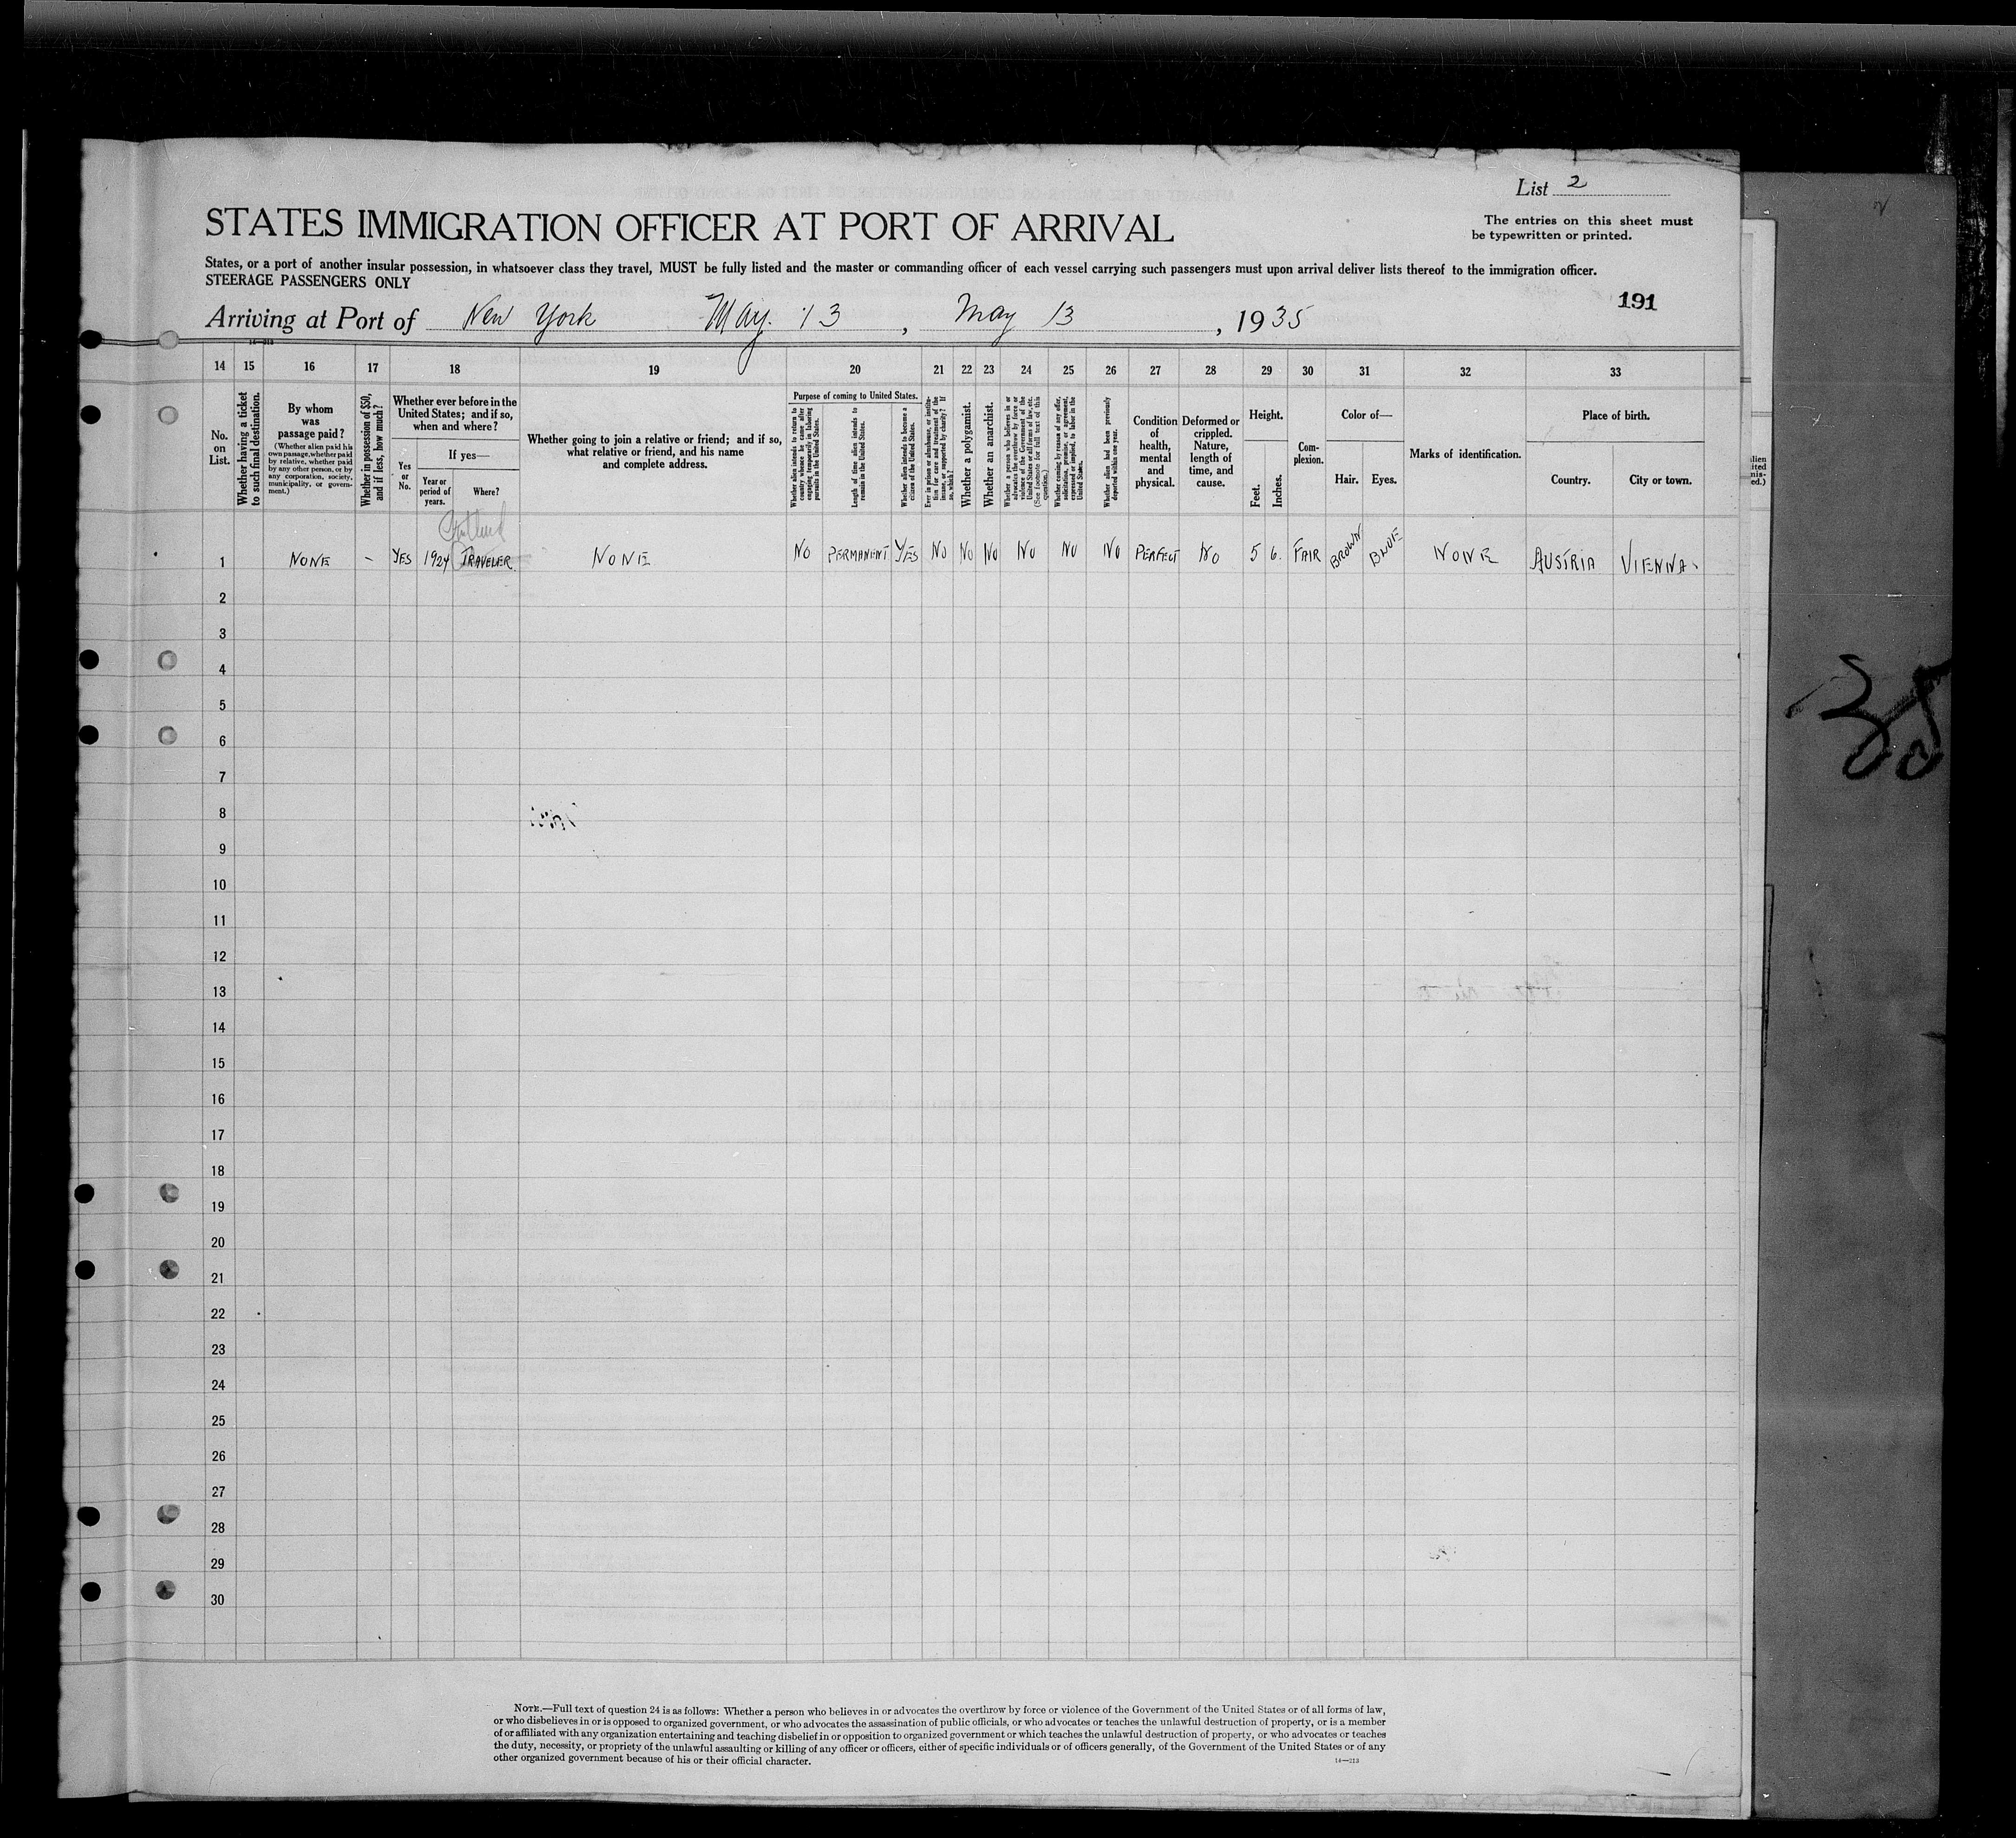 List 2
The entries on this sheet must
be typewritten or printed.
STATES IMMIGRATION OFFICER AT PORT OF ARRIVAL
States, or a port of another insular possession, in whatsoever class they travel, MUST be fully listed and the master or commanding officer of each vessel carrying such passengers must upon arrival deliver lists thereof to the immigration officer.
STEERAGE PASSENGERS ONLY
191
Arriving at Port of New York May. 13, May 13, 1935
14 15 16 17 18 19 20 21 22 23 24 25 26 27 28 29 30 31 32 33
No.
on
List.
Whether having a ticket
to such final destination.
By whom
was
passage paid?
(Whether alien paid his
own passage, whether paid
by relative, whether paid
by any other person, or by
any corporation, society,
municipality, or govern-
ment.)
Whether in possession of $50,
and if less, how much?
Whether ever before in the
United States; and if so,
when and where?
Yes
or
No.
If yes—
Year or
period of
years.
Where?
Whether going to join a relative or friend; and if so,
what relative or friend, and his name
and complete address.
Purpose of coming to United States.
Whether alien intends to return to
country whence he came after
engaging temporarily in laboring
pursuits in the United States.
Length of time alien intends to
remain in the United States.
Whether alien intends to become a
citizen of the United States.
Ever in prison or almshouse, or institu-
tion for care and treatment of the
insane, or supported by charity? If
so, which?
Whether a polygamist.
Whether an anarchist.
Whether a person who believes in or
advocates the overthrow by force or
violence of the Government of the
United States or all forms of law, etc.
(See footnote for full text of this
question.)
Whether coming by reason of any offer,
solicitation, promise, or agreement,
expressed or implied, to labor in the
United States.
Whether alien had been previously
deported within one year.
Condition
of
health,
mental
and
physical.
Deformed or
crippled.
Nature,
length of
time, and
cause.
Height.
Feet.
Inches.
Com-
plexion.
Color of—
Hair.
Eyes.
Marks of identification.
Place of birth.
Country.
City or town.
1 NONE – YES 1924 TRAVELER NONE NO PERMANENT YES NO NO NO NO NO NO PERFECT NO 5 6. FAIR BROWN BLUE NONE AUSTRIA VIENNA
2
3
4
5
6
7
8
9
10
11
12
13
14
15
16
17
18
19
20
21
22
23
24
25
26
27
28
29
30
NOTE.—Full text of question 24 is as follows: Whether a person who believes in or advocates the overthrow by force or violence of the Government of the United States or of all forms of law,
or who disbelieves in or is opposed to organized government, or who advocates the assassination of public officials, or who advocates or teaches the unlawful destruction of property, or is a member
of or affiliated with any organization entertaining and teaching disbelief in or opposition to organized government or which teaches the unlawful destruction of property, or who advocates or teaches
the duty, necessity, or propriety of the unlawful assaulting or killing of any officer or officers, either of specific individuals or of officers generally, of the Government of the United States or of any
other organized government because of his or their official character.
14—213